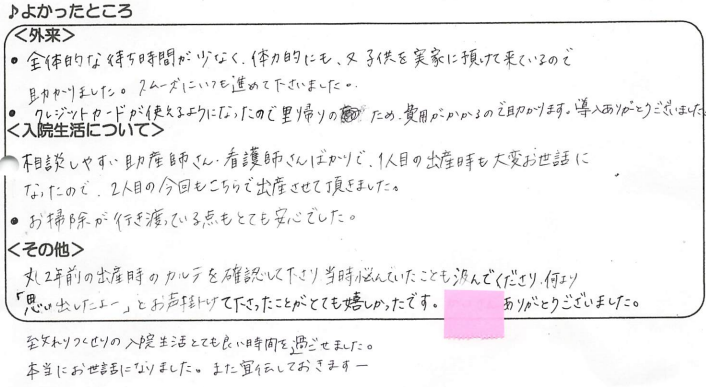 ♪よかったところ
<外来>
• 全体的な待ち時間が少なく、体力的にも、又 子供を実家に預けて来ているので
助かりました。スムーズにいつも進めて下さいました。
• クレジットカードが使えるようになったので里帰りの ため、費用がかかるので助かります。導入ありがとうございました
<入院生活について>
相談しやすい助産師さん・看護師さんばかりで、1人目の出産時も大変お世話に
なったので、2人目の今回もこちらで出産させて頂きました。
• お掃除が行き渡っている点もとても安心でした。
<その他>
丸2年前の出産時のカルテを確認して下さり当時悩んでいたことも汲んでくださり、何より
「思い出したよー」とお声掛けて下さったことがとても嬉しかったです。 ありがとうございました。
至れりつくせりの入院生活とても良い時間を過ごせました。
本当にお世話になりました。また宣伝しておきますー